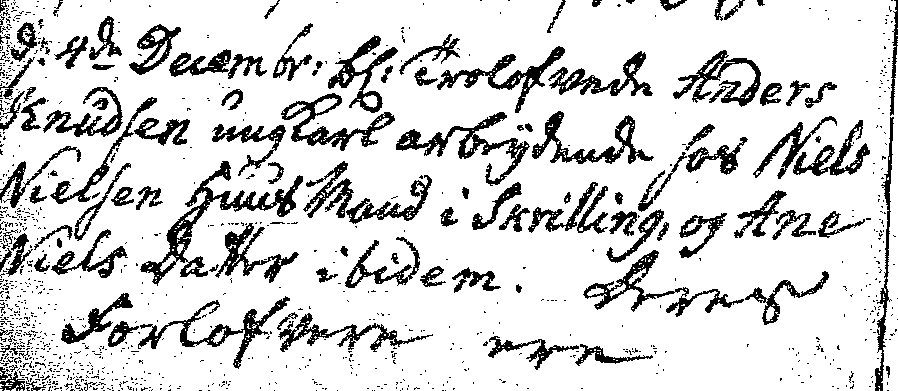 d: 4de Decembr: bl: Trolofvede Anders
Knudsen ungKarl arbeydende hos Niels
Nielsen HuusMand i Skrilling, og Ane
Niels Datter ibidem. Deres
Forlofvere ere